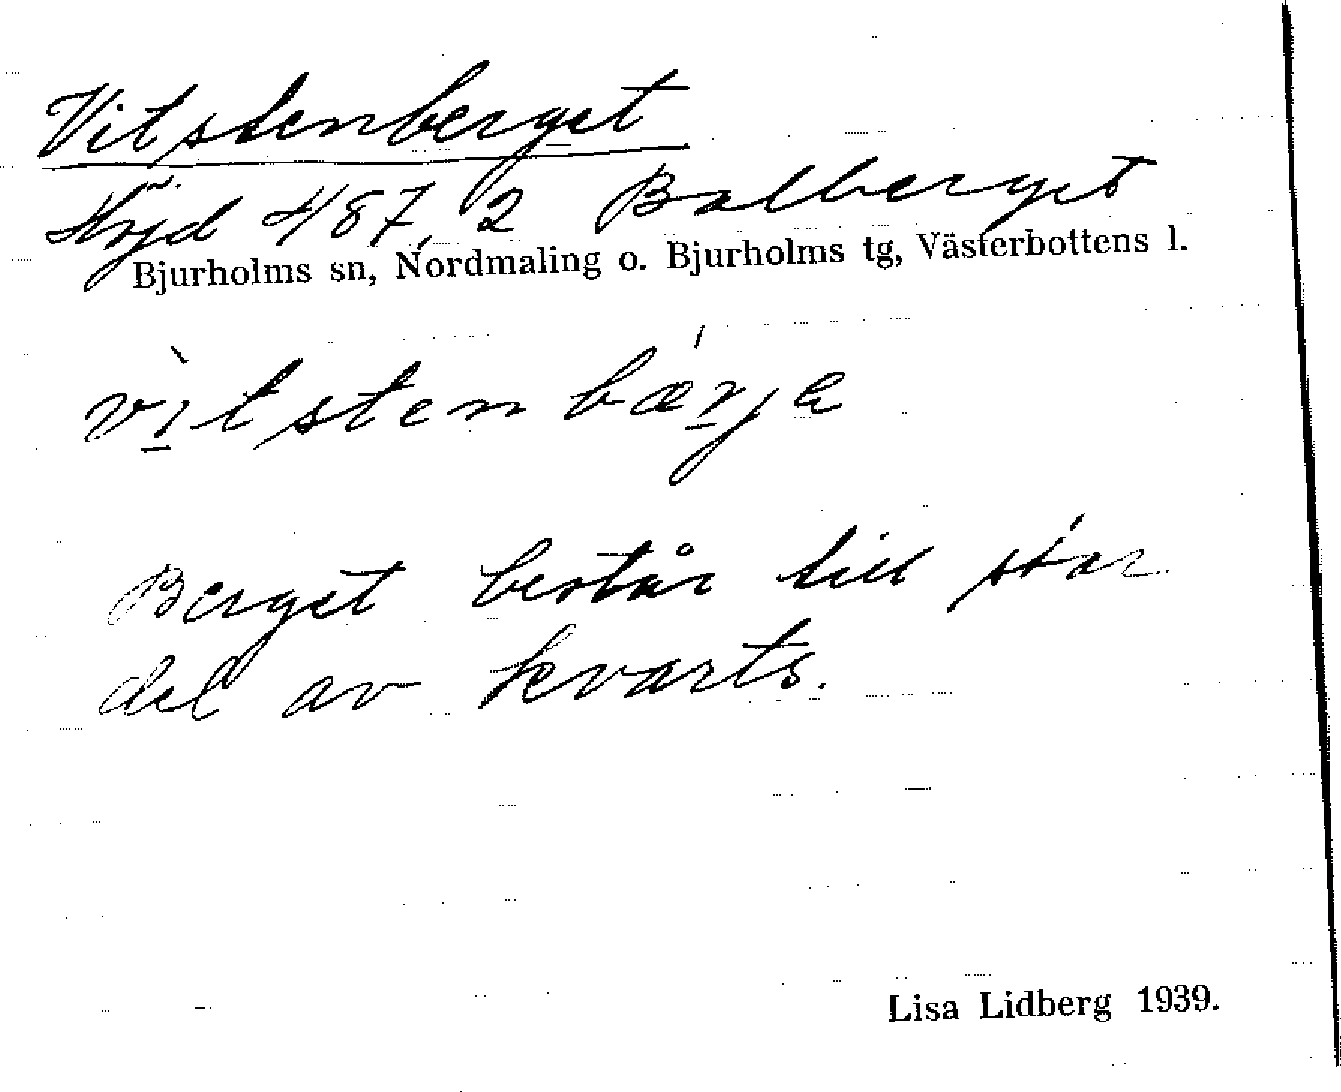 Vitstenberget
Höjd 487,2 Balberget
Bjurholms sn, Nordmaling o. Bjurholms tg, Västerbottens l.
vı̀tstenbǽrja
Berget består till stor
del av kvarts.
Lisa Lidberg 1939.